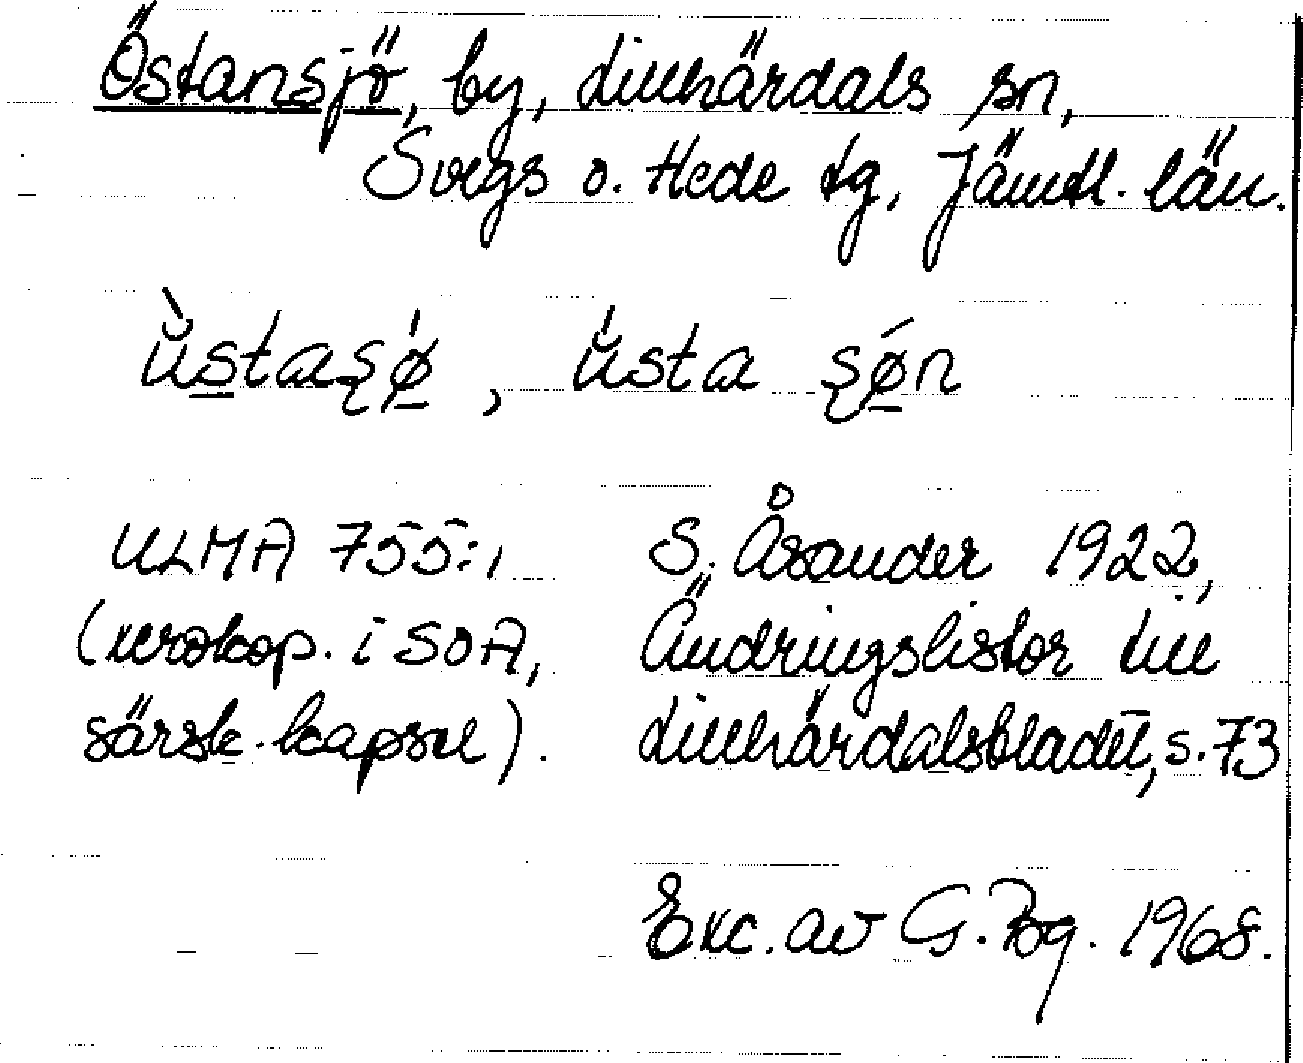 Östansjö, by, Lillhärdals sn,
Svegs o. Hede tg, Jämtl. län.
ù̆stasǿ̨, ú̆sta sǿ̨n
ULMA 755:1 S. Åsander 1922,
(xerokop. i SOA, Ändringslistor till
särsk. kapsel). Lillhärdalsbladet, s. 73
Exc. av G. Bg. 1968.